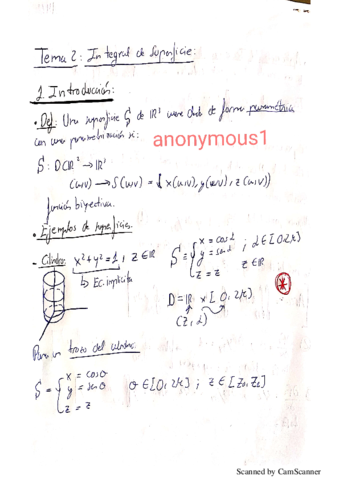 Tema 2: Integral de Superficie:
1 Introducción:
• Def: Una superficie S de ℝ³ viene dada de forma paramétrica
con una parametrización si:
anonymous1
S: D⊂ℝ² → ℝ³
(u,v) → S(u,v) = (x(u,v), y(u,v), z(u,v))
función biyectiva.
• Ejemplos de superficies.
- Cilindro: x² + y² = 1, z ∈ ℝ
↳ Ec. implícita
S = { x = cos λ
y = sen λ ; λ ∈ [0, 2π]
z = z z ∈ ℝ
D = ℝ × [0, 2π]
(z, λ)
Para un trozo del cilindro:
S = { x = cosθ
y = senθ θ ∈ [0, 2π] ; z ∈ [z₀, z₁]
z = z
Scanned by CamScanner